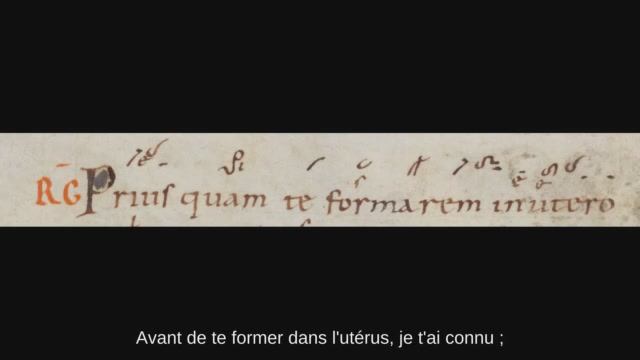 RG Prius quam te formarem inutero
Avant de te former dans l'utérus, je t'ai connu ;